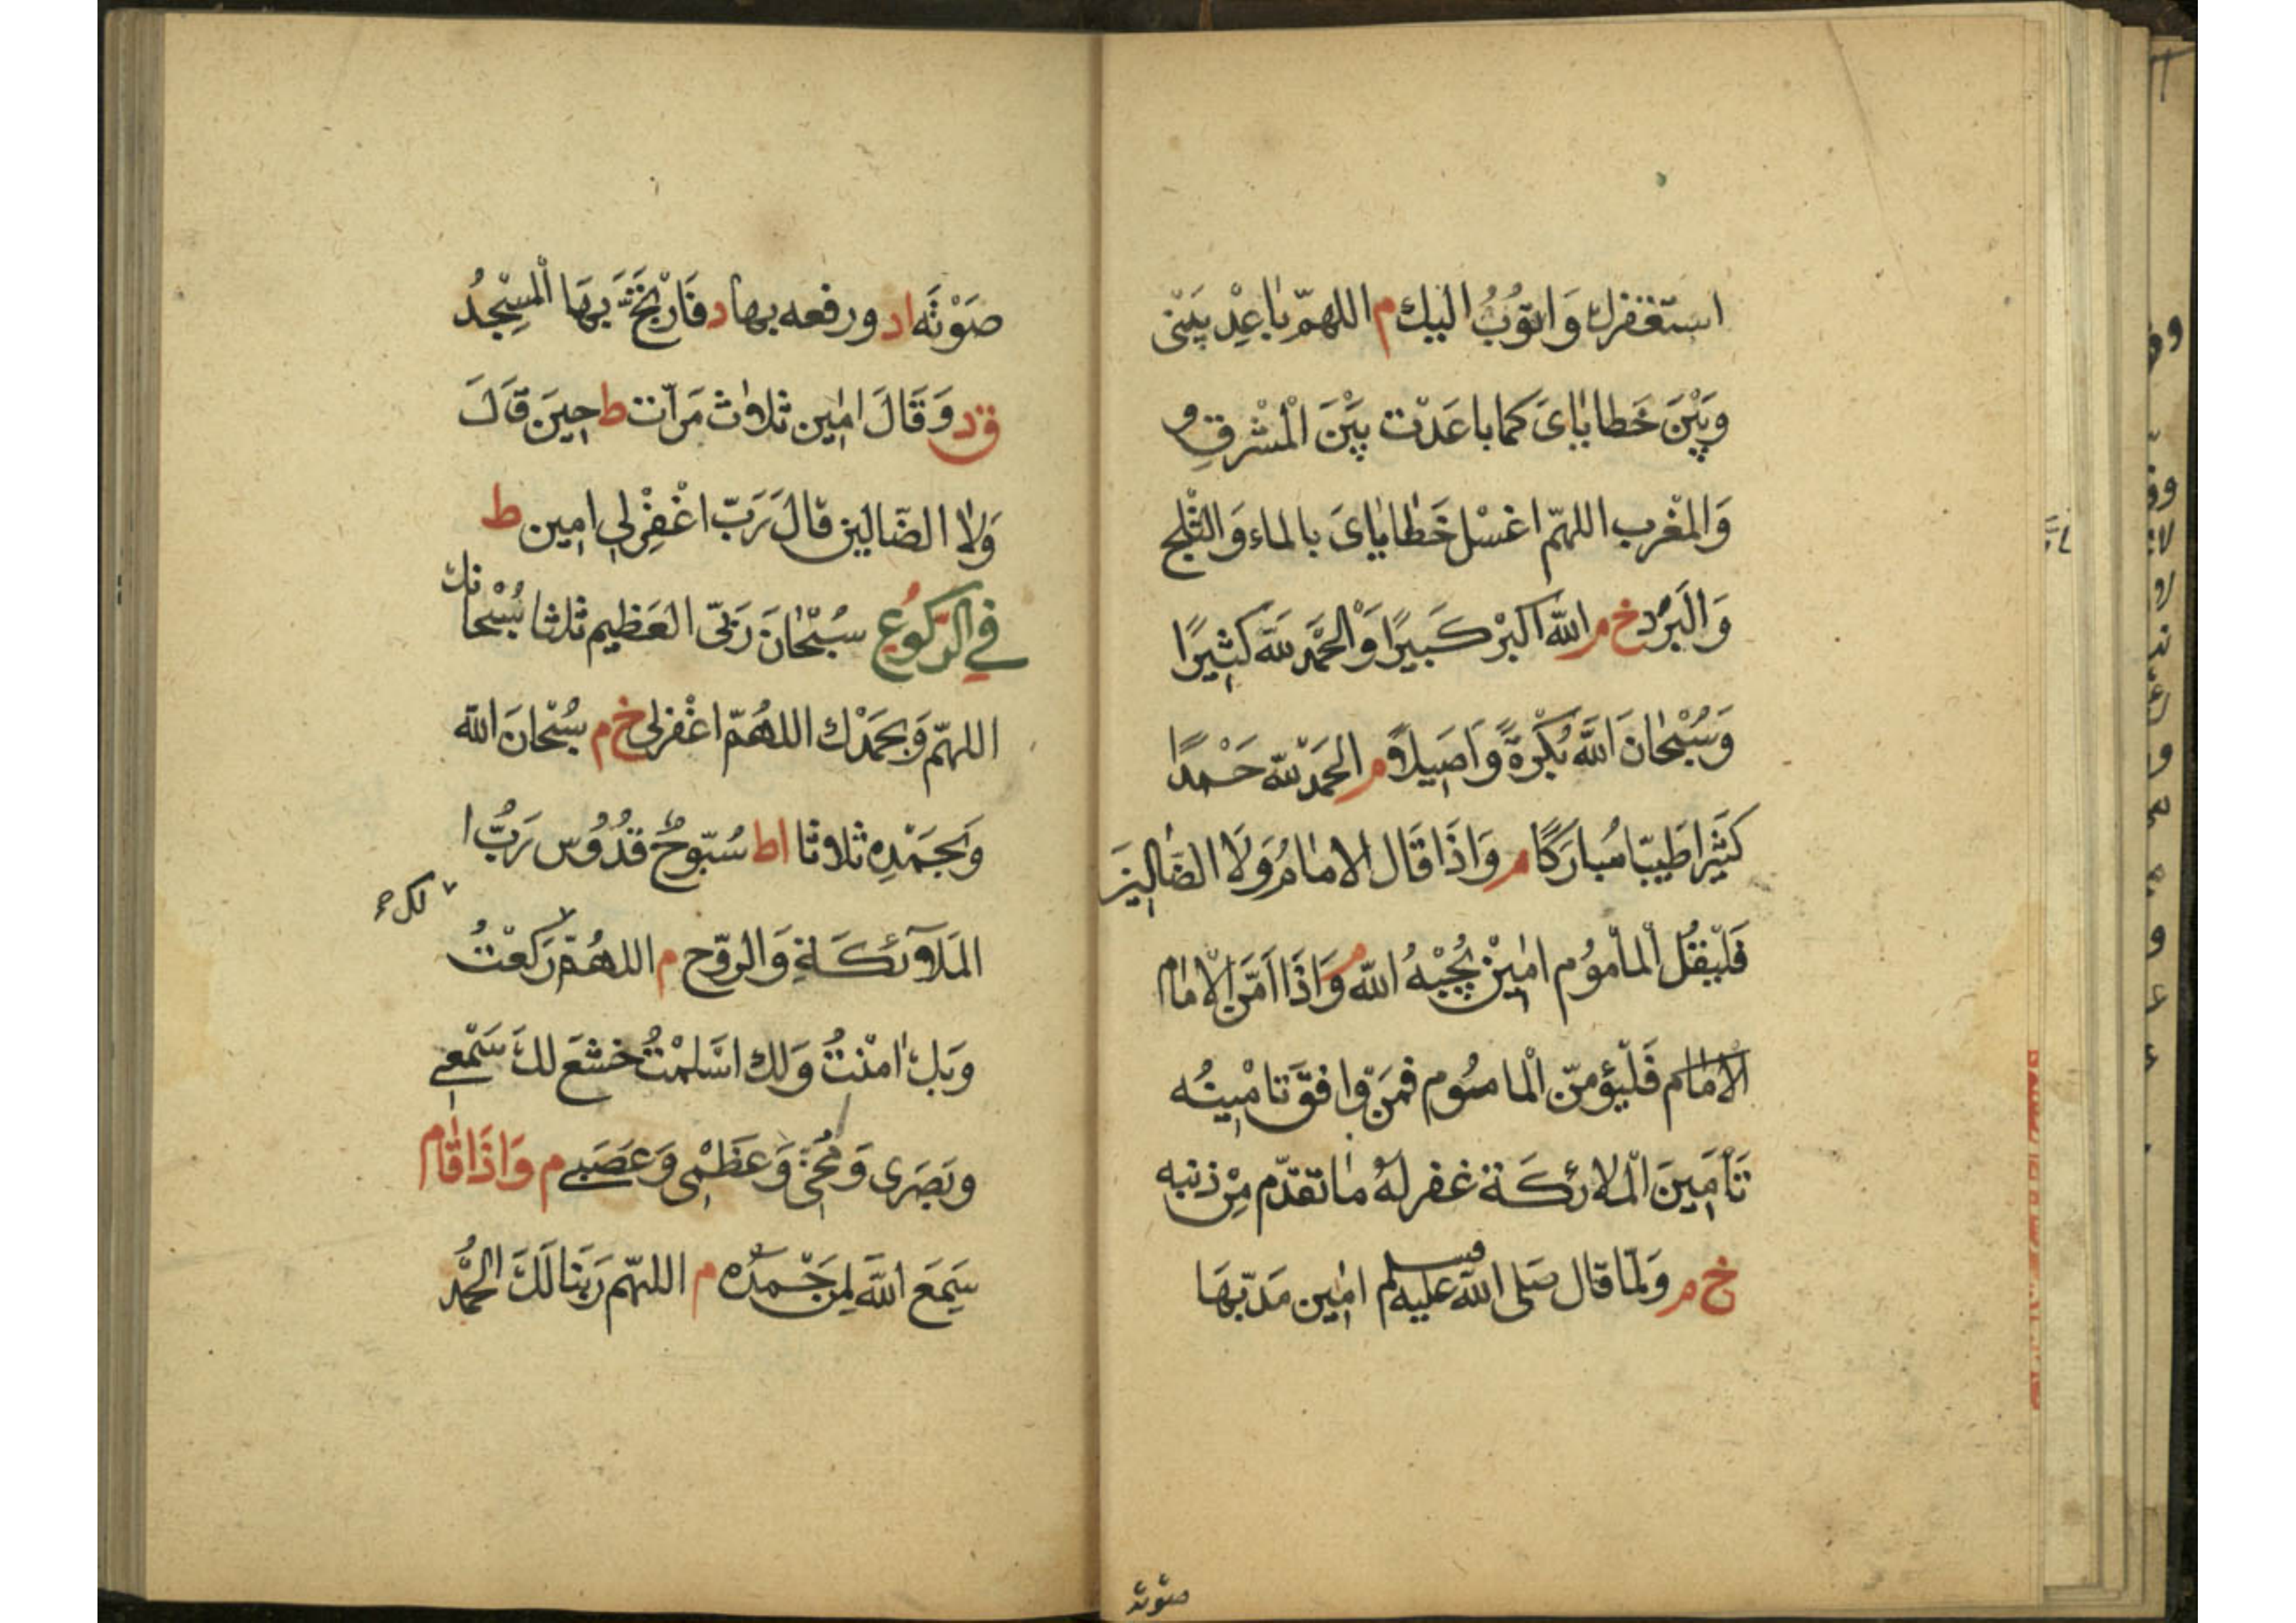 استغفرك وَاتوُبُ اليك م اللهمّ بَاعِدْ بَيَنْى
وَبَيْنَ خَطايَاىَ كما باعَدْت بَيْنَ الْمشْرقِ و
وَالمغْرب اللهمّ اغسْل خَطايَاىَ بالماء وَالثْلج
وَالَبرْد خ م الله اكبرْ كَبيرًا وَالحمْد لله كثيرًا
وَسُبْحَانَ اللهَ بُكْرةً وَاصَيلاً م الحَمدْ لله حَمْدًا
كَثيَرا طَيبّا مُبارَكًا م وَاذَا قَال الامَامُ وَلَا الضَالينَ
فَلْيقُل الْمأموُم امٰينْ يُجِبْهُ الله م وَاذَا امَّنَ الْامَام
الْامَام فَلْيؤمنّ الْماموُم فمَن وافقَ تَامْينُه
تَأمَينَ الْملائكَة غفر لهُ مَا تقدّم مِنْ ذنبه
خ م وَلمَا قال صَلى الله عليه وسلم امٰين مَدّ بهَا
صَوْتَه
صَوْتَه اد ورفعه بها د فَارْتجَّ بهَا الْمسْجدُ
ق د وَقَالَ امٰين ثلاث مَرّات ط حِينَ قَالَ
وَلا الضَالين قالَ رَبّ اغْفِرْلى امين ط
في الرَّكُوُع سُبْحَانَ رَبىّ العَظيم ثلثا سُبْحانك
اللهمّ وَبحَمدْك اللهُمّ اغْفرلى خ م سُبْحَانَ الله
وَبحَمْدِه ثلاثا اط سُبّوحٌ قدُوُس رَبُّ ا
لك
المَلَآئكَةِ وَالروّح م اللهُمّ رَكعْتُ
وَبك امْنتُ وَلك اسَلمْتُ خشعَ لكَ سَمْعى
وبَصَرى وَمُخىّ وَعَظْمى وَعَصَبى م وَاذَا قَام
سَمِعَ اللهَ لِمن حَمدَه م اللهمّ رَبَنا لَكَ الحَمْدُ